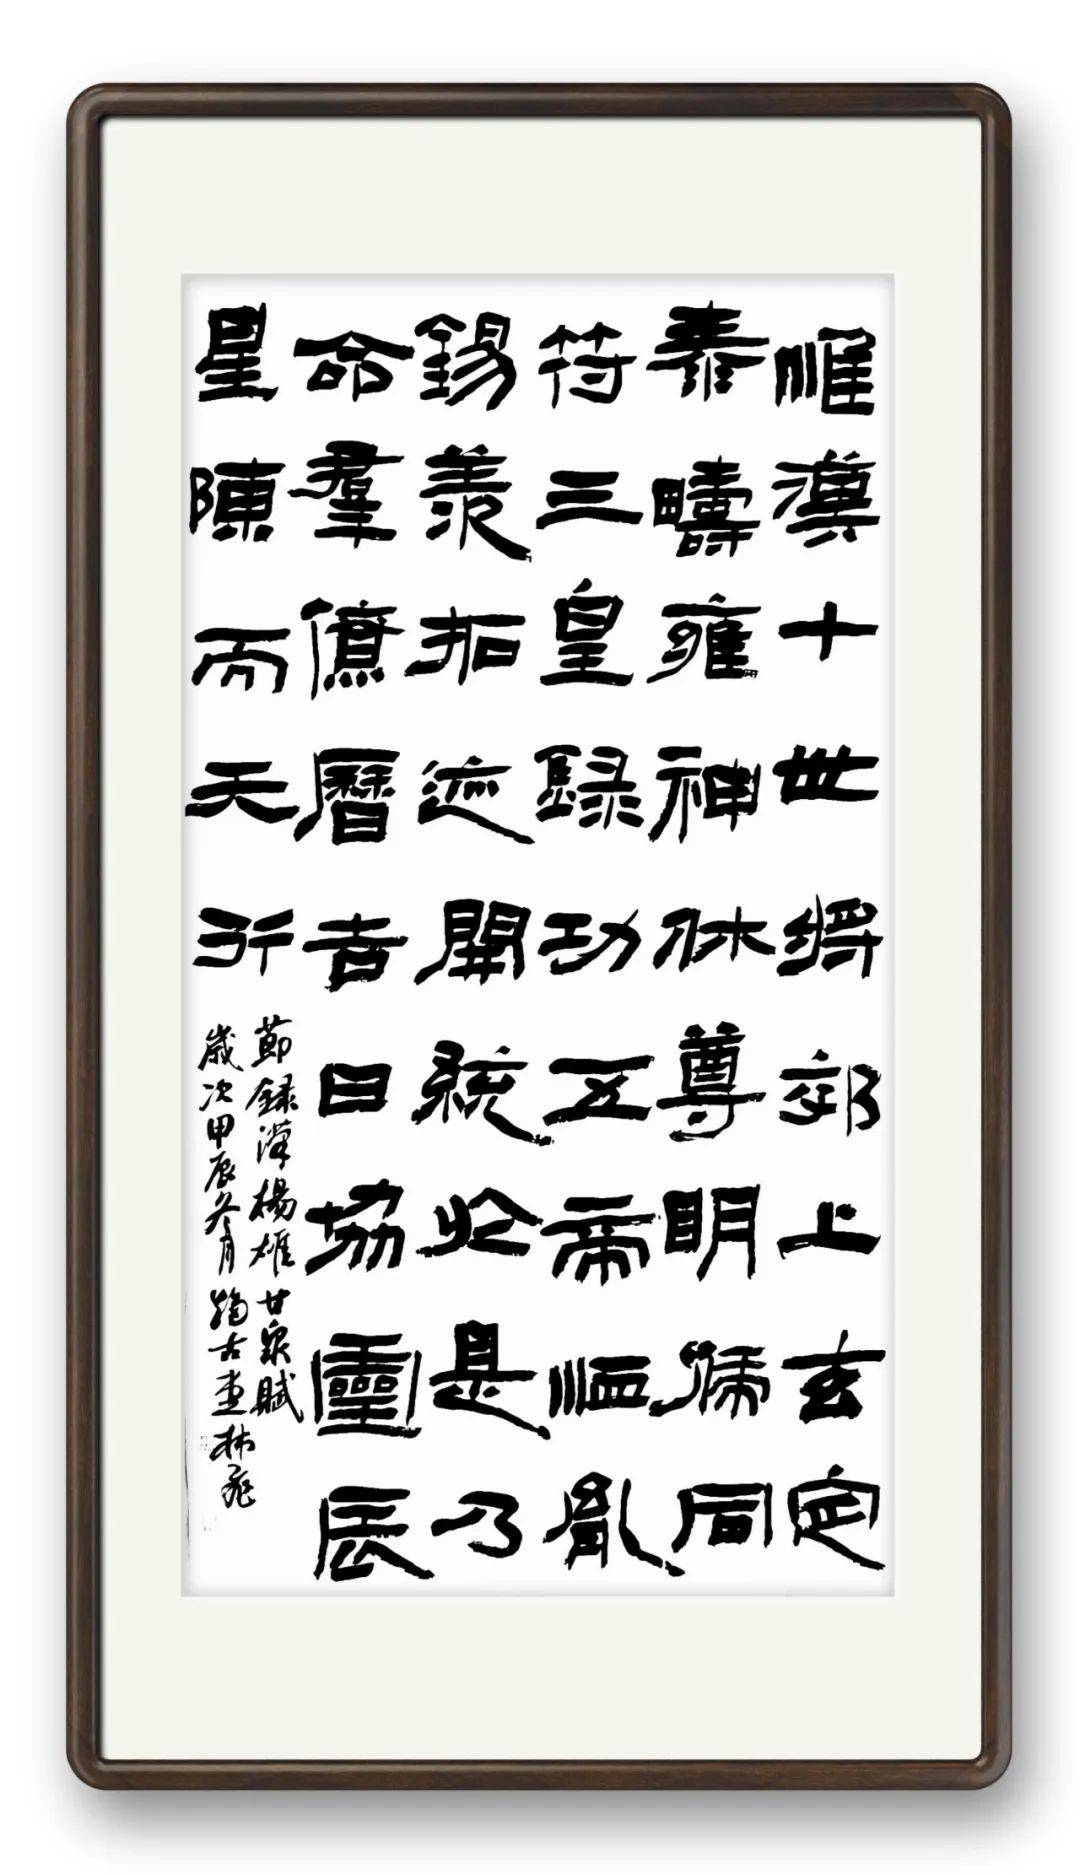 惟漢十世將郊上玄定
泰疇雍神休尊明號同
符三皇録功五帝恤胤
錫羨拓迹開統於是乃
命羣僚曆吉日協靈辰
星陳而天行
節録漢楊雄甘泉賦
歲次甲辰冬月古堂林飛